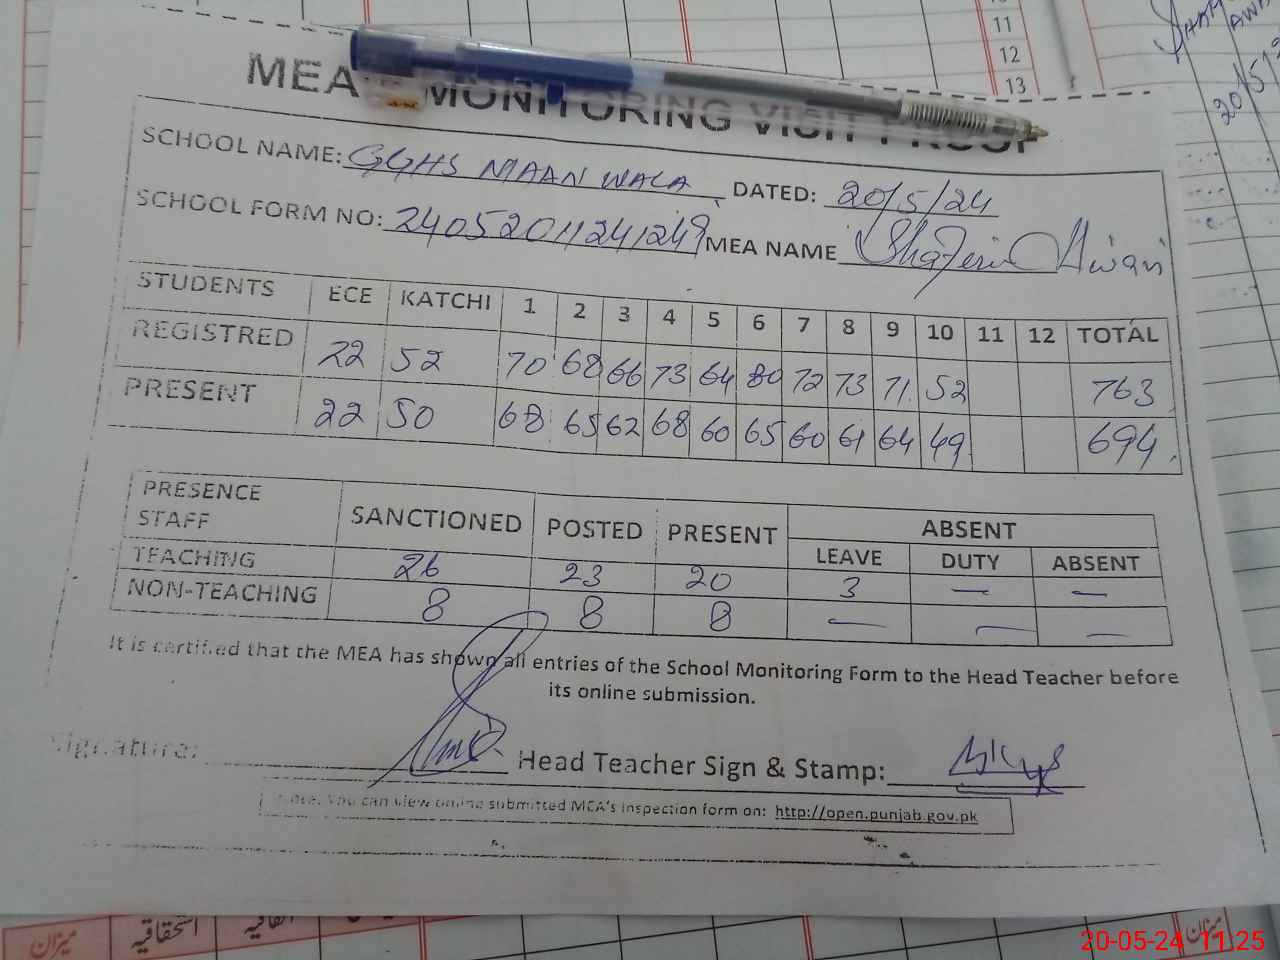 11
12
13
MEA MONITORING VISIT PROOF
SCHOOL NAME: GGHS MAAN WALA DATED: 20/5/24
SCHOOL FORM NO: 24052011241249 MEA NAME Awan
STUDENTS ECE KATCHI 1 2 3 4 5 6 7 8 9 10 11 12 TOTAL
REGISTRED 22 52 70 68 66 73 64 80 72 73 71 52 763
PRESENT 22 50 68 65 62 68 60 65 60 61 64 49 694
PRESENCE STAFF SANCTIONED POSTED PRESENT ABSENT
LEAVE DUTY ABSENT
TEACHING 26 23 20 3 — —
NON-TEACHING 8 8 8 — — —
It is certified that the MEA has shown all entries of the School Monitoring Form to the Head Teacher before
its online submission.
Signature: Head Teacher Sign & Stamp:
Note: You can view online submitted MCA's inspection form on: http://open.punjab.gov.pk
میزان استحقاقیہ اتفاقیہ میزان
20-05-24 11:25